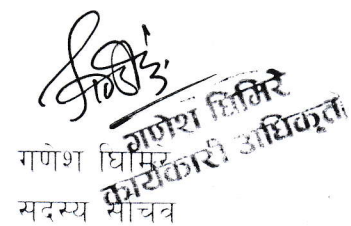 गणेश घिमिरे
कार्यकारी अधिकृत
गणेश घिमिरे
सदस्य सचिव